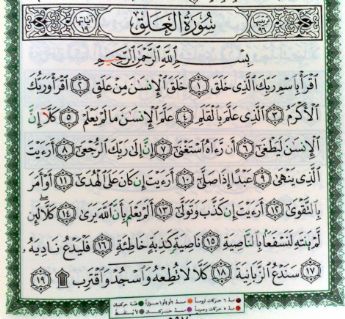 ترتيبها ٩٦ سُورَةُ العَلَق آياتها ١٩
بِسْمِ اللَّهِ الرَّحْمَنِ الرَّحِيمِ
اقْرَأْ بِاسْمِ رَبِّكَ الَّذِي خَلَقَ ١ خَلَقَ الْإِنسَنَ مِنْ عَلَقٍ ٢ اقْرَأْ وَرَبُّكَ
الْأَكْرَمُ ٣ الَّذِي عَلَّمَ بِالْقَلَمِ ٤ عَلَّمَ الْإِنسَنَ مَا لَمْ يَعْلَمْ ٥ كَلَّا إِنَّ
الْإِنسَنَ لَيَطْغَى ٦ أَن رَّءَاهُ اسْتَغْنَى ٧ إِنَّ إِلَى رَبِّكَ الرُّجْعَى ٨ أَرَءَيْتَ
الَّذِي يَنْهَى ٩ عَبْدًا إِذَا صَلَّى ١٠ أَرَءَيْتَ إِن كَانَ عَلَى الْهُدَى ١١ أَوْ أَمَرَ
بِالتَّقْوَى ١٢ أَرَءَيْتَ إِن كَذَّبَ وَتَوَلَّى ١٣ أَلَمْ يَعْلَم بِأَنَّ اللَّهَ يَرَى ١٤ كَلَّا لَئِن
لَّمْ يَنتَهِ لَنَسْفَعًا بِالنَّاصِيَةِ ١٥ نَاصِيَةٍ كَذِبَةٍ خَاطِئَةٍ ١٦ فَلْيَدْعُ نَادِيَهُ
١٧ سَنَدْعُ الزَّبَانِيَةَ ١٨ كَلَّا لَا تُطِعْهُ وَاسْجُدْ وَاقْتَرِب ۩ ١٩